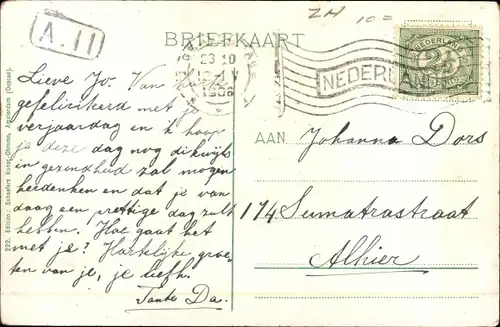 ZH 10=
A.11
BRIEFKAART
23 10
1908
NEDERLAND
NEDERLAND
2½
Lieve Jo. Van
gefeliciteerd met je
verjaardag en ik hoop
je deze dag nog dikwijls
in gezondheid zal mogen
herdenken en dat je van
daag een prettige dag zult
hebben. Hoe gaat het
met je? Hartelijke groe-
ten van je, je liefh.
Tante Da.
AAN Johanna Dors
174 Sumatrastraat
Alhier
222. Edition: Schaefers Kunst-Chromo, Amsterdam (Depose).